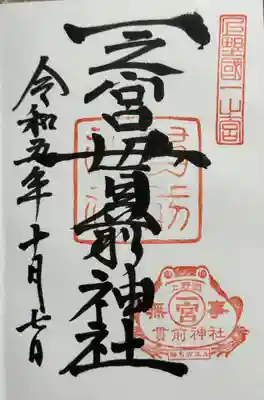 上野國一之宮
一之宮貫前神社
令和五年十月七日
上野國
一宮
無事
貫前神社